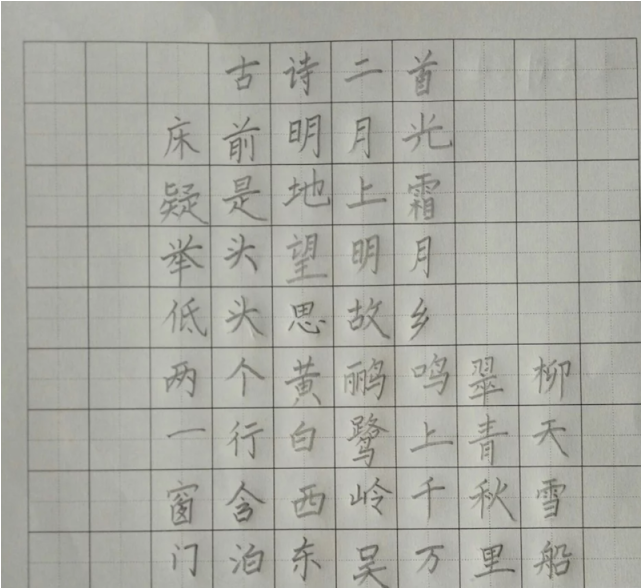 古诗二首
床前明月光
疑是地上霜
举头望明月
低头思故乡
两个黄鹂鸣翠柳
一行白鹭上青天
窗含西岭千秋雪
门泊东吴万里船